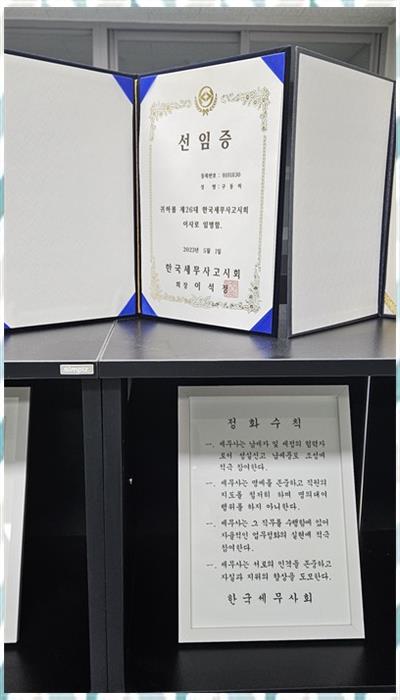 선임증
등록번호 :
성 명 : 구 동 하
귀하를 제26대 한국세무사고시회
이사로 임명함.
2023년 5월 2일
한국세무사고시회
회장 이 석 정
simpiz
정 화 수 칙
一. 세무사는 납세자 및 세정의 협력자
로서 성실신고 납세풍토 조성에
적극 참여한다.
一. 세무사는 명예를 존중하고 직원의
지도를 철저히 하며 명의대여
행위를 하지 아니한다.
一. 세무사는 그 직무를 수행함에 있어
자율적인 업무정화의 실현에 적극
참여한다.
一. 세무사는 서로의 인격을 존중하고
자질과 지위의 향상을 도모한다.
한국세무사회